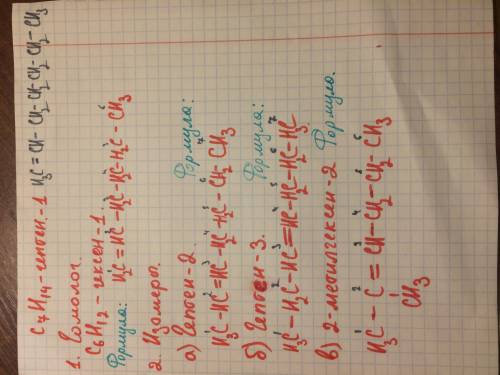 C7H14 - гептен-1 H2C = CH - CH2 - CH2 - CH2 - CH2 - CH3
1. Гомолог.
C6H12 - гексен-1
Формула: H2C = HC - H2C - H2C - H2C - CH3
2. Изомеры.
а) Гептен-2. Формула:
H3C - HC = HC - H2C - H2C - CH2 CH3
б) Гептен-3. Формула:
H3C - H2C - HC = HC - H2C - H2C - H3C
в) 2-метилгексен-2 Формула.
H3C - C = CH - CH2 - CH2 - CH3
CH3